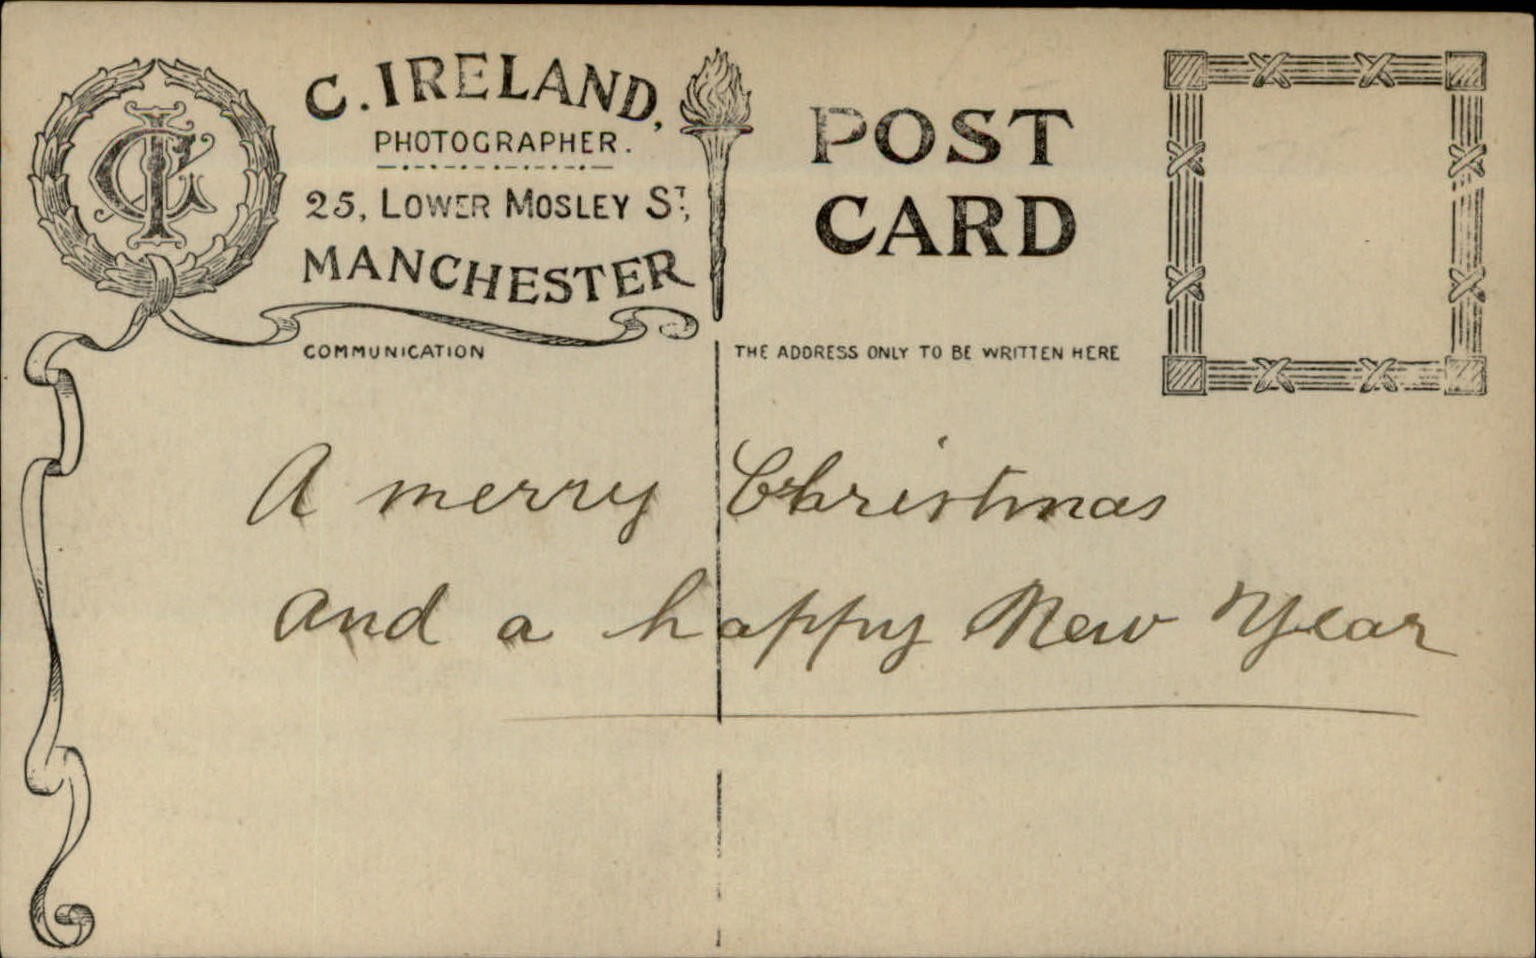 CI
C. IRELAND,
PHOTOGRAPHER.
25, LOWER MOSLEY ST,
MANCHESTER
POST
CARD
COMMUNICATION
THE ADDRESS ONLY TO BE WRITTEN HERE
A merry Christmas
and a happy New Year